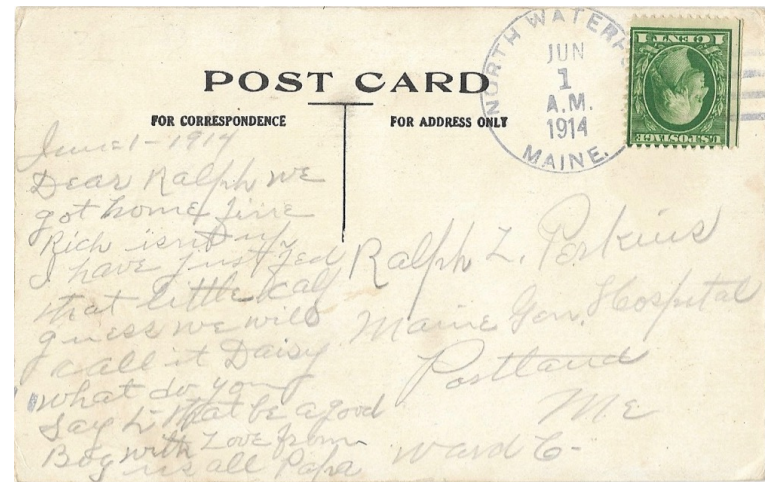 POST CARD
FOR CORRESPONDENCE
FOR ADDRESS ONLY
NORTH WATERF
JUN
1
A.M.
1914
MAINE.
1 CENT 1
U.S. POSTAGE
June 1 - 1914
Dear Ralph we
got home fine
Rich isn't up
I have just fed
that little calf
guess we will
call it Daisy
what do you
say to that be a good
Boy with Love from
us all Papa
Ralph L. Perkins
Maine Gen. Hospital
Portland
Me
Ward 6-